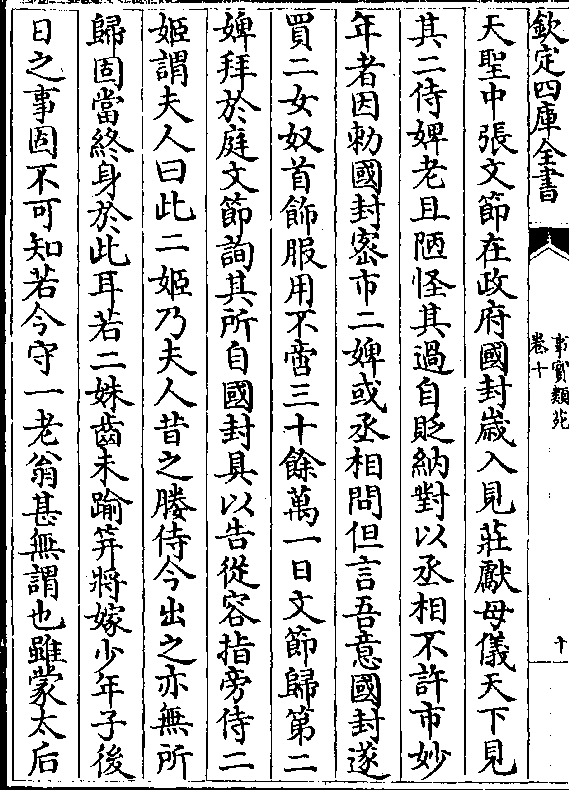 欽定四庫全書
事實類苑
卷十
十
天聖中張文節在政府國封嵗入見莊獻母儀天下見
其二侍婢老且陋怪其過自貶納對以丞相不許市妙
年者因勅國封密市二婢或丞相問但言吾意國封遂
買二女奴首飾服用不啻三十餘萬一日文節歸第二
婢拜於庭文節詢其所自國封具以告從容指旁侍二
姬謂夫人曰此二姬乃夫人昔之媵侍今出之亦無所
歸固當終身於此耳若二姝齒未踰笄將嫁少年子後
日之事固不可知若今守一老翁甚無謂也雖蒙太后